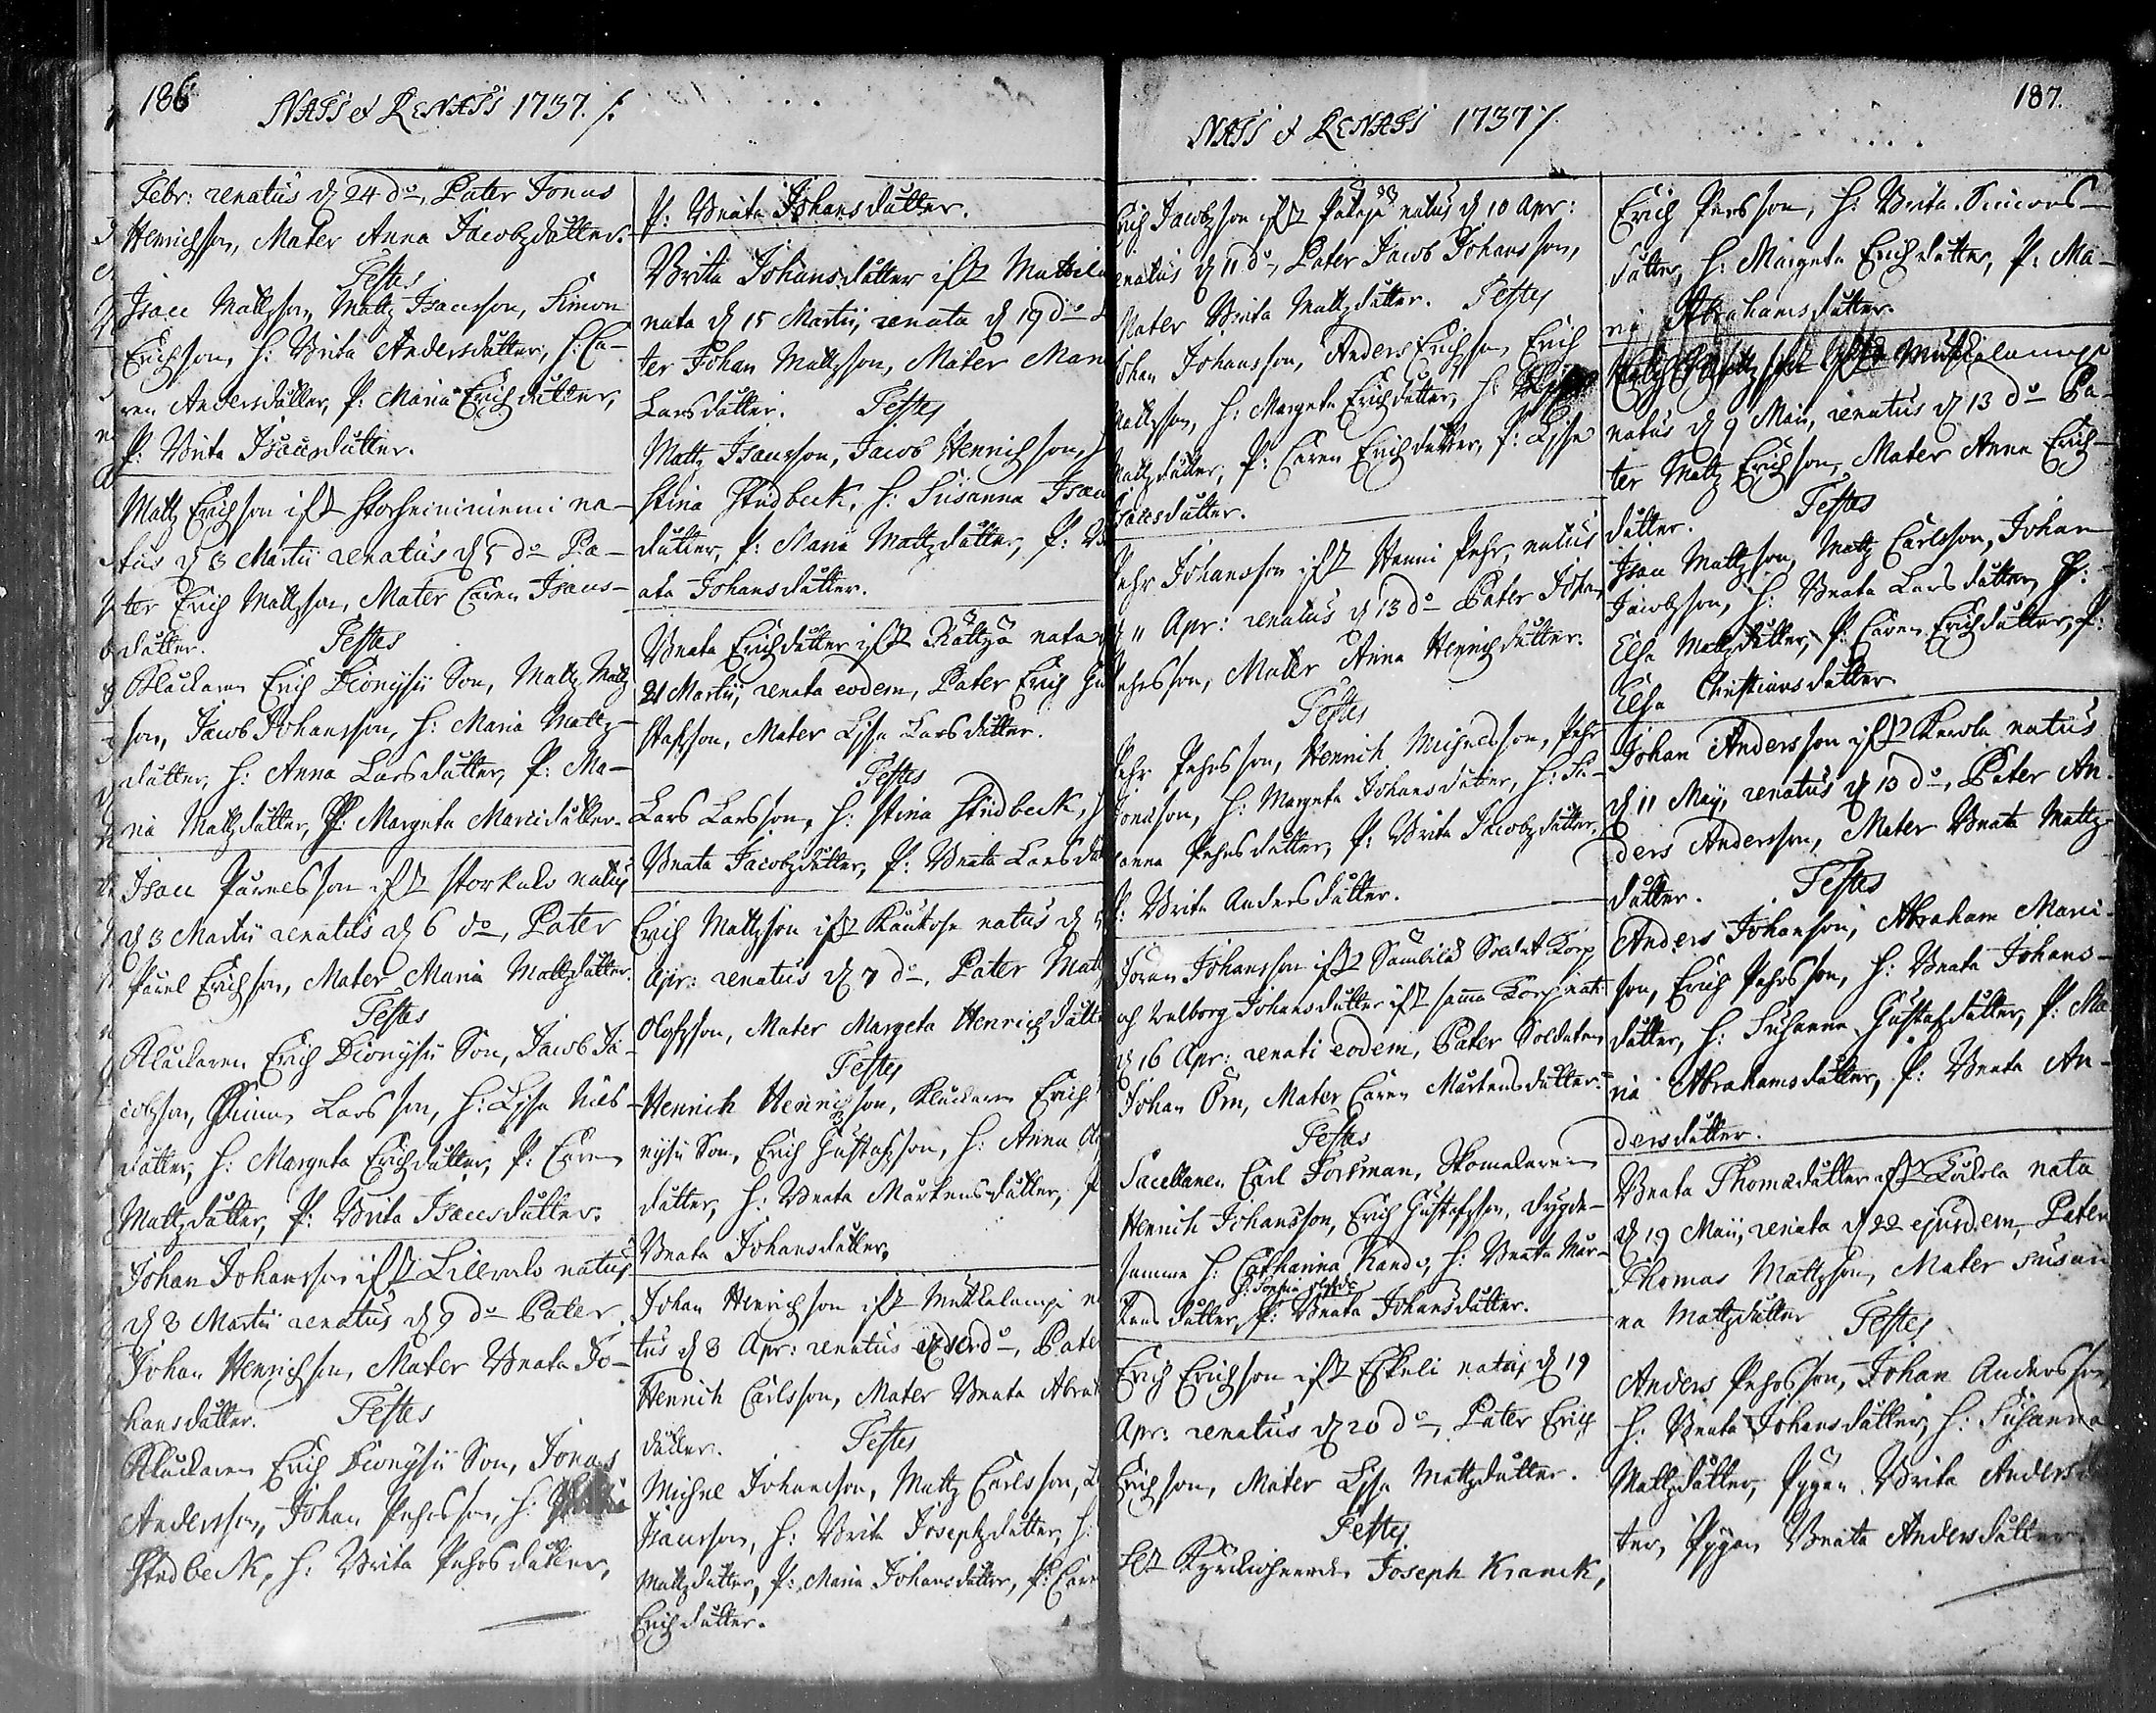 186
NATI et RENATI 1737. /.
Febr: renatus d 24 do, Pater Jonas
Henrichsson, Mater Anna Jacobzdåtter.
Testes
Isaac Mattzson, Mattz Isacsson, Simon
Erichson, h: Brita Andersdåtter, h: Ca-
ren Andersdåtter, P: Maria Erichdåtter,
P: Brita Isaacsdåtter.
Mattz Erichson ifr Storheiniemi na-
tus d 3 Martii renatus d 5 do Pa-
ter Erich Mattzson, Mater Caren Isaacs-
dåtter. Testes
Klåckaren Erich Dionysii Son, Mattz Mattz
son, Jacob Johansson, h: Maria Mattz-
dåtter, h: Anna Larsdåtter, P: Ma-
ria Mattzdåtter, P: Margeta Marcidåtter.
Isaac Påvelsson ifr Storkulo natus
d 3 Martii renatus d 6 do, Pater
Påvel Erichson, Mater Maria Mattzdåtter.
Testes
Klåckaren Erich Dionysii Son, Jacob Ja-
cobzson, Larsson, h: Lisa Nils-
dåtter, h: Margeta Erichdåtter, P: Caren
Mattzdåtter, P: Brita Isaacsdåtter.
Johan Johansson ifr Lillkulo natus
d 8 Martii renatus d 9 do Pater
Johan Henrichson, Mater Beata Jo-
hansdåtter. Testes
Klåckaren Erich Dionysii Son, Jonas
Andersson, Johan Pehrsson, h: Stina
Studbeck, h: Brita Pehrsdåtter,
P: Beata Johansdåtter.
Brita Johansdåtter ifr Mattila
nata d 15 Martii, renata d 19 do
ter Johan Mattzson, Mater Mari
Larsdåtter. Testes
Mattz Isacsson, Jacob Henrichson,
Stina Studbeck, h: Susanna Isac
dåtter, P: Maria Mattzdåtter, P: Be
ata Johansdåtter.
Beata Erichdåtter ifr Kättyä nata
21 Martii, renata eodem, Pater Erich Gu
stafzson, Mater Lisa Larsdåtter.
Testes
Lars Larsson, h: Stina Studbeck,
Beata Jacobzdåtter, P: Beata Larsdå
Erich Mattzson ifr natus d
Apr: renatus d 7 do, Pater Matt
Olofzson, Mater Margeta Henrichdåtte
Testes
Henrich Henrichson, Klåckaren Erich
nysii Son, Erich Gustafzson, h: Anna
dåtter, h: Beata Mårtensdåtter, P
Beata Johansdåtter,
Johan Henrichson ifr Mutkalampi na
tus d 8 Apr: renatus do, Pater
Henrich Carlsson, Mater Beata Abra
dåtter. Testes
Michel Johansson, Mattz Carlsson,
Isacsson, h: Brita Josephzdåtter, h:
Mattzdåtter, P: Maria Johansdåtter, P: Care
Erichdåtter.
187.
NATI et RENATI 1737 /.
Erich Jacobzson ifr natus d 10 Apr:
renatus d 11 do, Pater Jacob Johansson,
Mater Brita Mattzdåtter. Testes
Johan Johansson, Anders Erichson, Erich
Mattzson, h: Margeta Erichdåtter, h:
Mattzdåtter, P: Caren Erichdåtter, P: Lisa
Isacsdåtter.
Pehr Johansson ifr Pehr, natus
d 11 Apr: renatus d 13 do Pater Johan
Pehrsson, Mater Anna Henrichdåtter.
Testes
Pehr Pehrsson, Henrich Michelsson, Pehr
Jonasson, h: Margeta Johansdåtter, h: Su-
sanna Pehrsdåtter, P: Brita Jacobzdåtter,
P: Brita Andersdåtter.
Göran Johansson ifr Soldat Torp
och Valborg Johansdåtter ifr samma Torp nati
d 16 Apr: renati eodem, Pater Soldaten
Johan Örn, Mater Caren Mårtensdåtter.
Testes
Sacellanen Carl Forsman, Skomakaren
Henrich Johansson, Erich Gustafzson, Dygde-
samme h: Catharina h: Beata Mår-
tensdåtter, P: Beata Johansdåtter.
Erich Erichson ifr Eskeli natus d 19
Apr: renatus d 20 do, Pater Erich
Erichson, Mater Lisa Mattzdåtter.
Testes
Joseph Kranck,
Erich Persson, h: Brita Simons-
dåtter, h: Margeta Erichdåtter, P: Ma-
ria Abrahamsdåtter.
Mutkalampi
natus d 9 Maii, renatus d 13 do Pa-
ter Mattz Erichson, Mater Anna Erich-
dåtter. Testes
Isac Mattzson, Mattz Carlsson, Johan
Jacobzson, h: Beata Larsdåtter, P:
Elsa Mattzdåtter, P: Caren Erichdåtter, P:
Elsa Christiansdåtter
Johan Andersson ifr Kerola natus
d 11 Maij, renatus d 13 do, Pater An-
ders Andersson, Mater Beata Mattz-
dåtter. Testes
Anders Johansson, Abraham Marci-
son, Erich Pehrsson, h: Beata Johans-
dåtter, h: Susanna Gustafdåtter, P: Ma
ria Abrahamsdåtter, P: Beata An-
dersdåtter.
Beata Thomædåtter ifr nata
d 19 Maii, renata d 22 ejusdem, Pater
Thomas Mattzson, Mater Susan
na Mattzdåtter Testes
Anders Pehrsson, Johan Andersson,
h: Beata Johansdåtter, h: Susanna
Mattzdåtter, Pigan Brita Andersdå
ter, Pigan Beata Andersdåtter